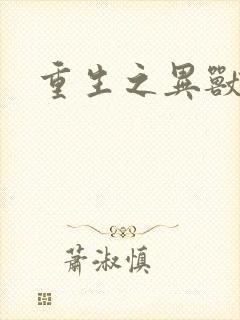 重生之異獸
蕭淑慎